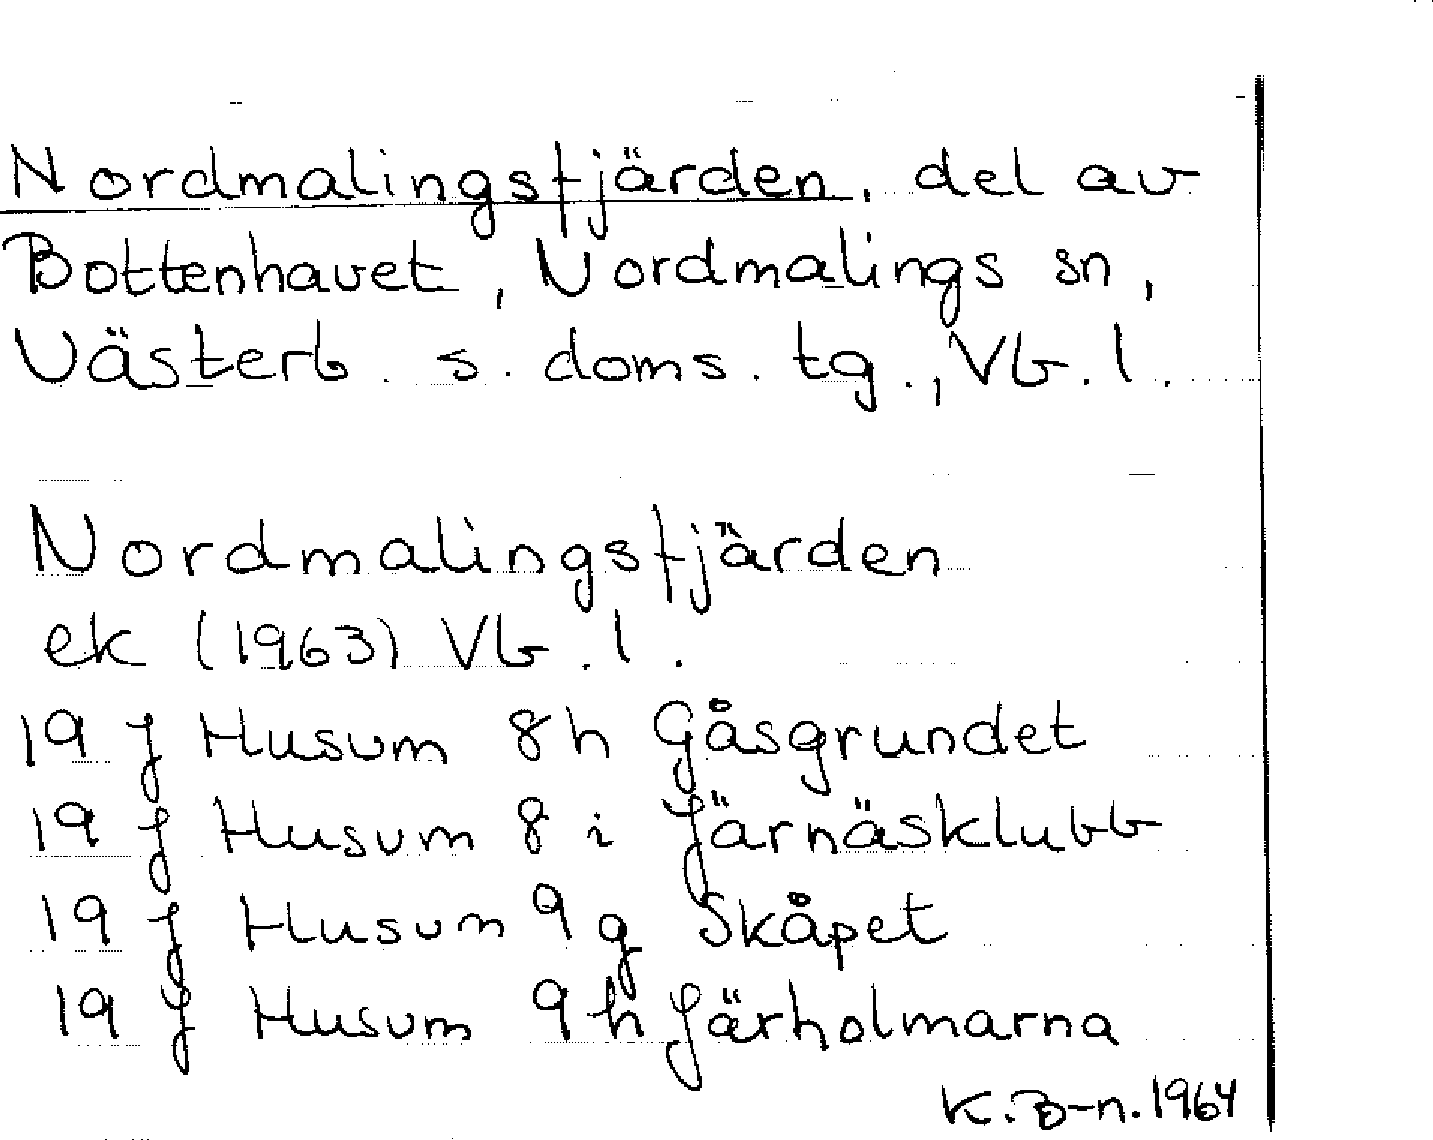 Nordmalingsfjärden, del av
Bottenhavet, Nordmalings sn,
Västerb. s. doms. tg., Vb. l.
Nordmalingsfjärden
ek (1963) Vb. l.
19 J Husum 8h Gåsgrundet
19 J Husum 8 i Järnäsklubb
19 J Husum 9g Skåpet
19 J Husum 9h Järholmarna
K. B-n. 1964